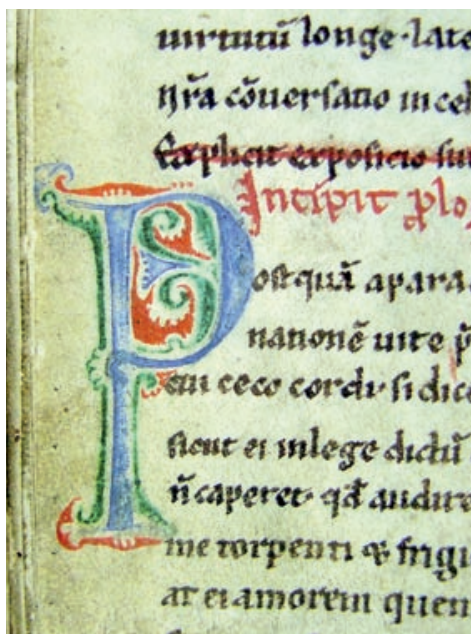 uirtutū longe·late
n̄r̄a cōuersatio in cel
Explicit exposicio sup
Incipit p̄lo
Postquā a para
natione uite p̄
cui ceco cordi si dice
sicut ei in lege dictū
n̄ caperet· qd̄ audire
me torpenti & frigi
at ei amorem quem